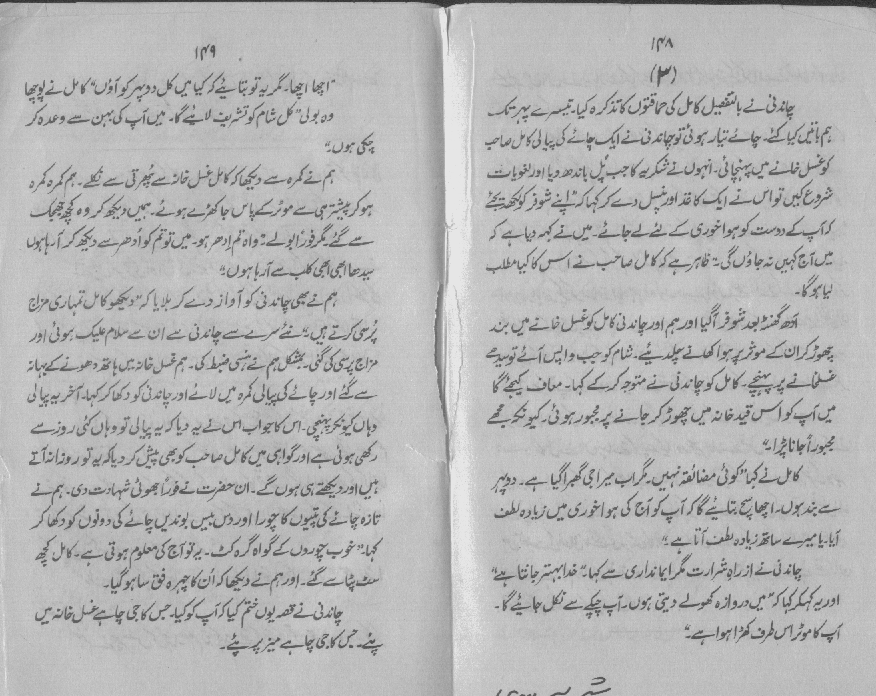 ۱۴۸
(۳)
چاندنی نے بالتفصیل کامل کی حماقتوں کا تذکرہ کیا۔ تیسرے پہر تک
ہم باتیں کیا کئے۔ چائے تیار ہوئی تو چاندنی نے ایک چائے کی پیالی کامل صاحب
کو غسل خانے میں پہنچائی۔ انہوں نے شکریہ کا جب پُل باندھ دیا اور لغویات
شروع کیں تو اس نے ایک کاغذ اور پنسل دے کر کہا کہ "اپنے شوفر کو لکھ دیجئے
کہ آپ کے دوست کو ہوا خوری کے لئے لے جائے۔ میں نے کہہ دیا ہے کہ
میں آج کہیں نہ جاؤں گی۔" ظاہر ہے کہ کامل صاحب نے اس کا کیا مطلب
لیا ہوگا۔
آدھ گھنٹہ بعد شوفر آگیا اور ہم اور چاندنی کامل کو غسل خانے میں بند
چھوڑ کر ان کے موٹر پر ہوا کھانے چلدیئے۔ شام کو جب واپس آئے تو سیدھے
غسلخانے پر پہنچے۔ کامل کو چاندنی نے متوجہ کر کے کہا۔ معاف کیجئے گا
میں آپ کو اس قید خانہ میں چھوڑ کر جانے پر مجبور ہوئی۔ کیونکہ مجھے
مجبوراً جانا پڑا۔"
کامل نے کہا "کوئی مضائقہ نہیں۔ مگر اب میرا جی گھبرا گیا ہے۔ دوپہر
سے بند ہوں۔ اچھا سچ بتایئے گا کہ آپ کو آج کی ہوا خوری میں زیادہ لطف
آیا۔ یا میرے ساتھ زیادہ لطف آتا ہے؟"
چاندنی نے از راہِ شرارت مگر ایمانداری سے کہا۔ "خدا بہتر جانتا ہے"
اور یہ کہکر کہا کہ "میں دروازہ کھولے دیتی ہوں۔ آپ چپکے سے نکل جائیے گا۔
آپ کا موٹر اس طرف کھڑا ہوا ہے۔"
۱۴۹
"اچھا اچھا۔ مگر یہ تو بتایئے کہ کیا میں کل دوپہر کو آؤں" کامل نے پوچھا
وہ بولی "کل شام کو تشریف لائیے گا۔ میں آپ کی بہن سے وعدہ کر
چکی ہوں۔"
ہم نے کمرہ سے دیکھا کہ کامل غسل خانہ سے پھرتی سے نکلے۔ ہم کمرہ کمرہ
ہو کر پیشتر ہی سے موٹر کے پاس جا کھڑے ہوئے۔ ہمیں دیکھ کر وہ کچھ جھجک
سے گئے مگر فوراً بولے "واہ تم ادھر ہو۔ میں تو تم کو اُدھر سے دیکھ کر آ رہا ہوں
سیدھا ابھی ابھی کلب سے آرہا ہوں۔"
ہم نے بھی چاندنی کو آواز دے کر بلایا کہ "دیکھو کامل تمہاری مزاج
پُرسی کرتے ہیں۔" نئے سرے سے چاندنی سے ان سے سلام علیک ہوئی اور
مزاج پرسی کی گئی۔ بمشکل ہم نے ہنسی ضبط کی۔ ہم غسل خانہ میں ہاتھ دھونے کے بہانہ
سے گئے اور چائے کی پیالی کمرہ میں لائے اور چاندنی کو دکھا کر کہا۔ آخر یہ پیالی
وہاں کیونکر پہنچی۔ اس کا جواب اس نے یہ دیا کہ یہ پیالی تو وہاں کئی روز سے
رکھی ہوئی ہے اور گواہی میں کامل صاحب کو بھی پیش کر دیا کہ یہ تو روزانہ آتے
ہیں اور دیکھتے ہی ہوں گے۔ ان حضرت نے فوراً جھوٹی شہادت دی۔ ہم نے
تازہ چائے کی پتیوں کا چورا اور دس بیس بوندیں چائے کی دونوں کو دکھا کر
کہا۔ "خوب چوروں کے گواہ گرہ کٹ۔ یہ تو آج کی معلوم ہوتی ہے۔ کامل کچھ
سٹ پٹا سے گئے۔ اور ہم نے دیکھا کہ اُن کا چہرہ فق سا ہو گیا۔
چاندنی نے قصہ یوں ختم کیا کہ آپ کو کیا۔ جس کا جی چاہے غسل خانہ میں
پئے۔ جس کا جی چاہے میز پر پئے۔